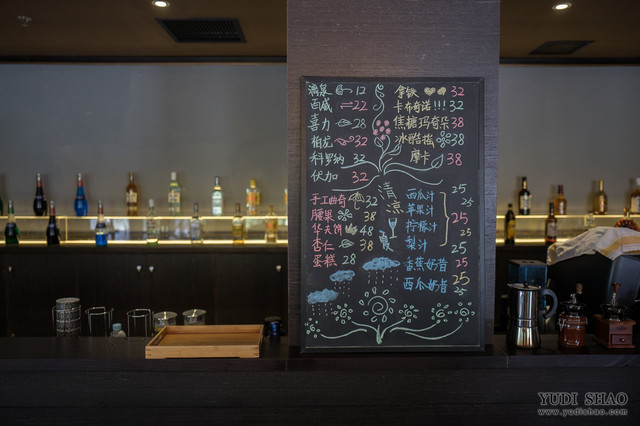 漓泉 12
百威 22
喜力 28
柏龙 32
科罗纳 32
伏加 32
手工曲奇 32
腰果 38
华夫饼 48
杏仁 38
蛋糕 28
拿铁 32
卡布奇诺!!! 32
焦糖玛奇朵 38
冰酷摇 38
摩卡 38
清凉一夏
西瓜汁 25
苹果汁 25
柠檬汁 25
梨汁 25
香蕉奶昔 25
西瓜奶昔 25
YUDI SHAO
www.yudishao.com